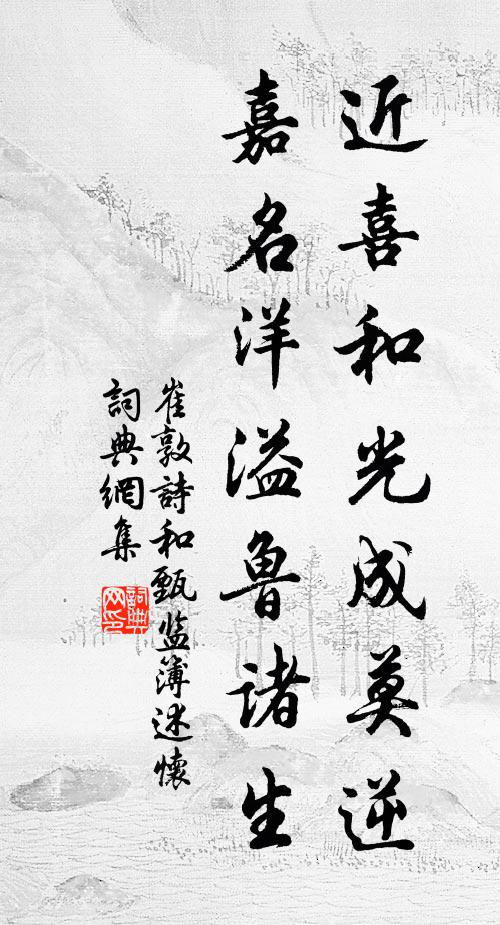 近喜和光成莫逆
嘉名洋溢鲁诸生
崔敦詩和甄监簿述懷
詞典網集
詞典网印